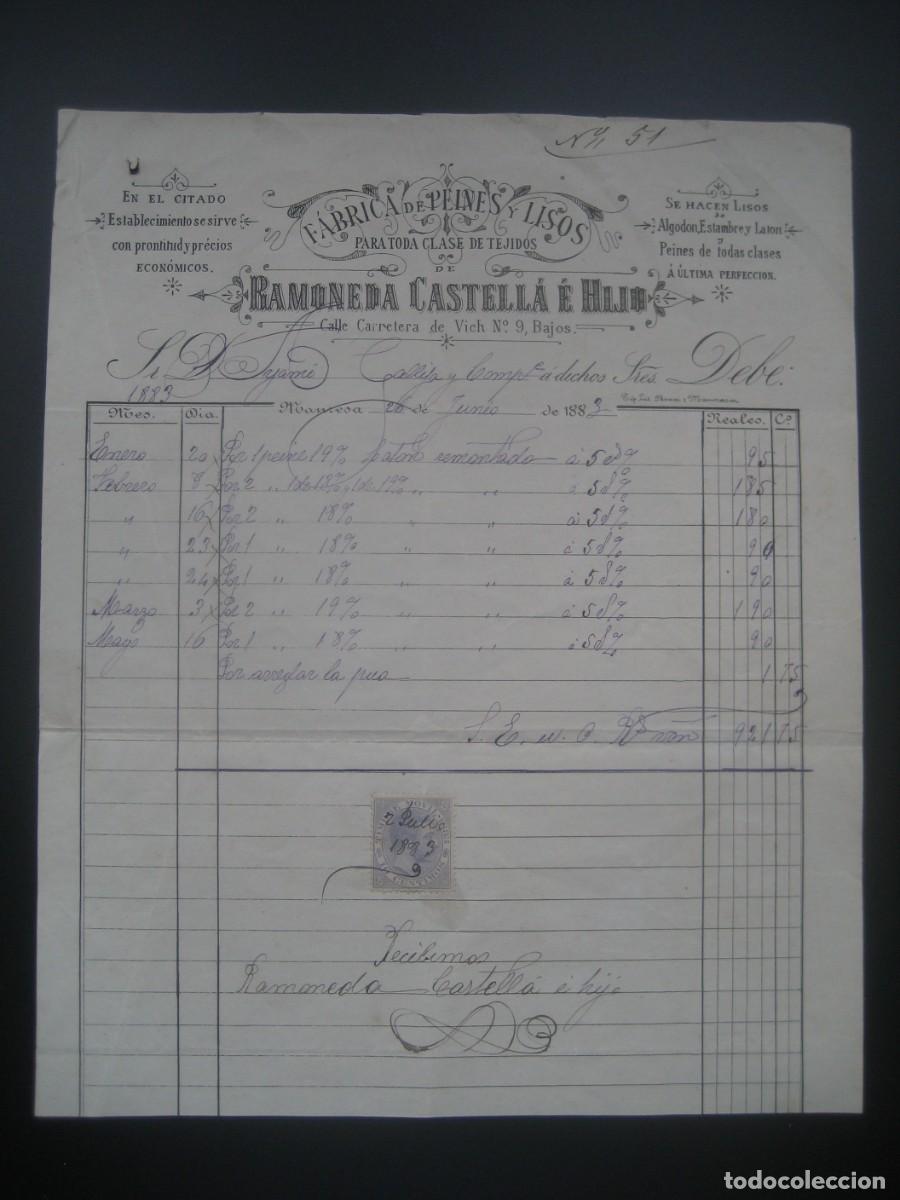 Nº 51
EN EL CITADO
Establecimiento se sirve
con prontitud y précios
ECONÓMICOS.
FÁBRICA DE PEINES Y LISOS
PARA TODA CLASE DE TEJIDOS
DE
RAMONEDA CASTELLÁ É HIJO
Calle Carretera de Vich Nº 9, Bajos.
SE HACEN LISOS
DE
Algodon, Estambre y Laton
y
Peines de todas clases
Á ÚLTIMA PERFECCION.
y Compª á dichos Sres. Debe:
1883
Mes. Dia. Manresa 26 de Junio de 1883 Reales. Cs
Enero 20 Por 1 peine 19% remontado á 5 95
Febrero Por 2 " 1 de 18% y 1 de 19% " " á 5 185
" 16 Por 2 " 18% " " á 5 180
" 23 Por 1 " 18% " " á 5 90
" 24 Por 1 " 18% " " á 5 90
Marzo 3 Por 2 " 19% " " á 5 190
Mayo 16 Por 1 " 18% " " á 5 90
Por arreglar la pua 1 75
S. E. u. O. Rs vn 921 75
2 Julio
1883
Recibimos
Ramoneda Castellá é hijo
todocoleccion